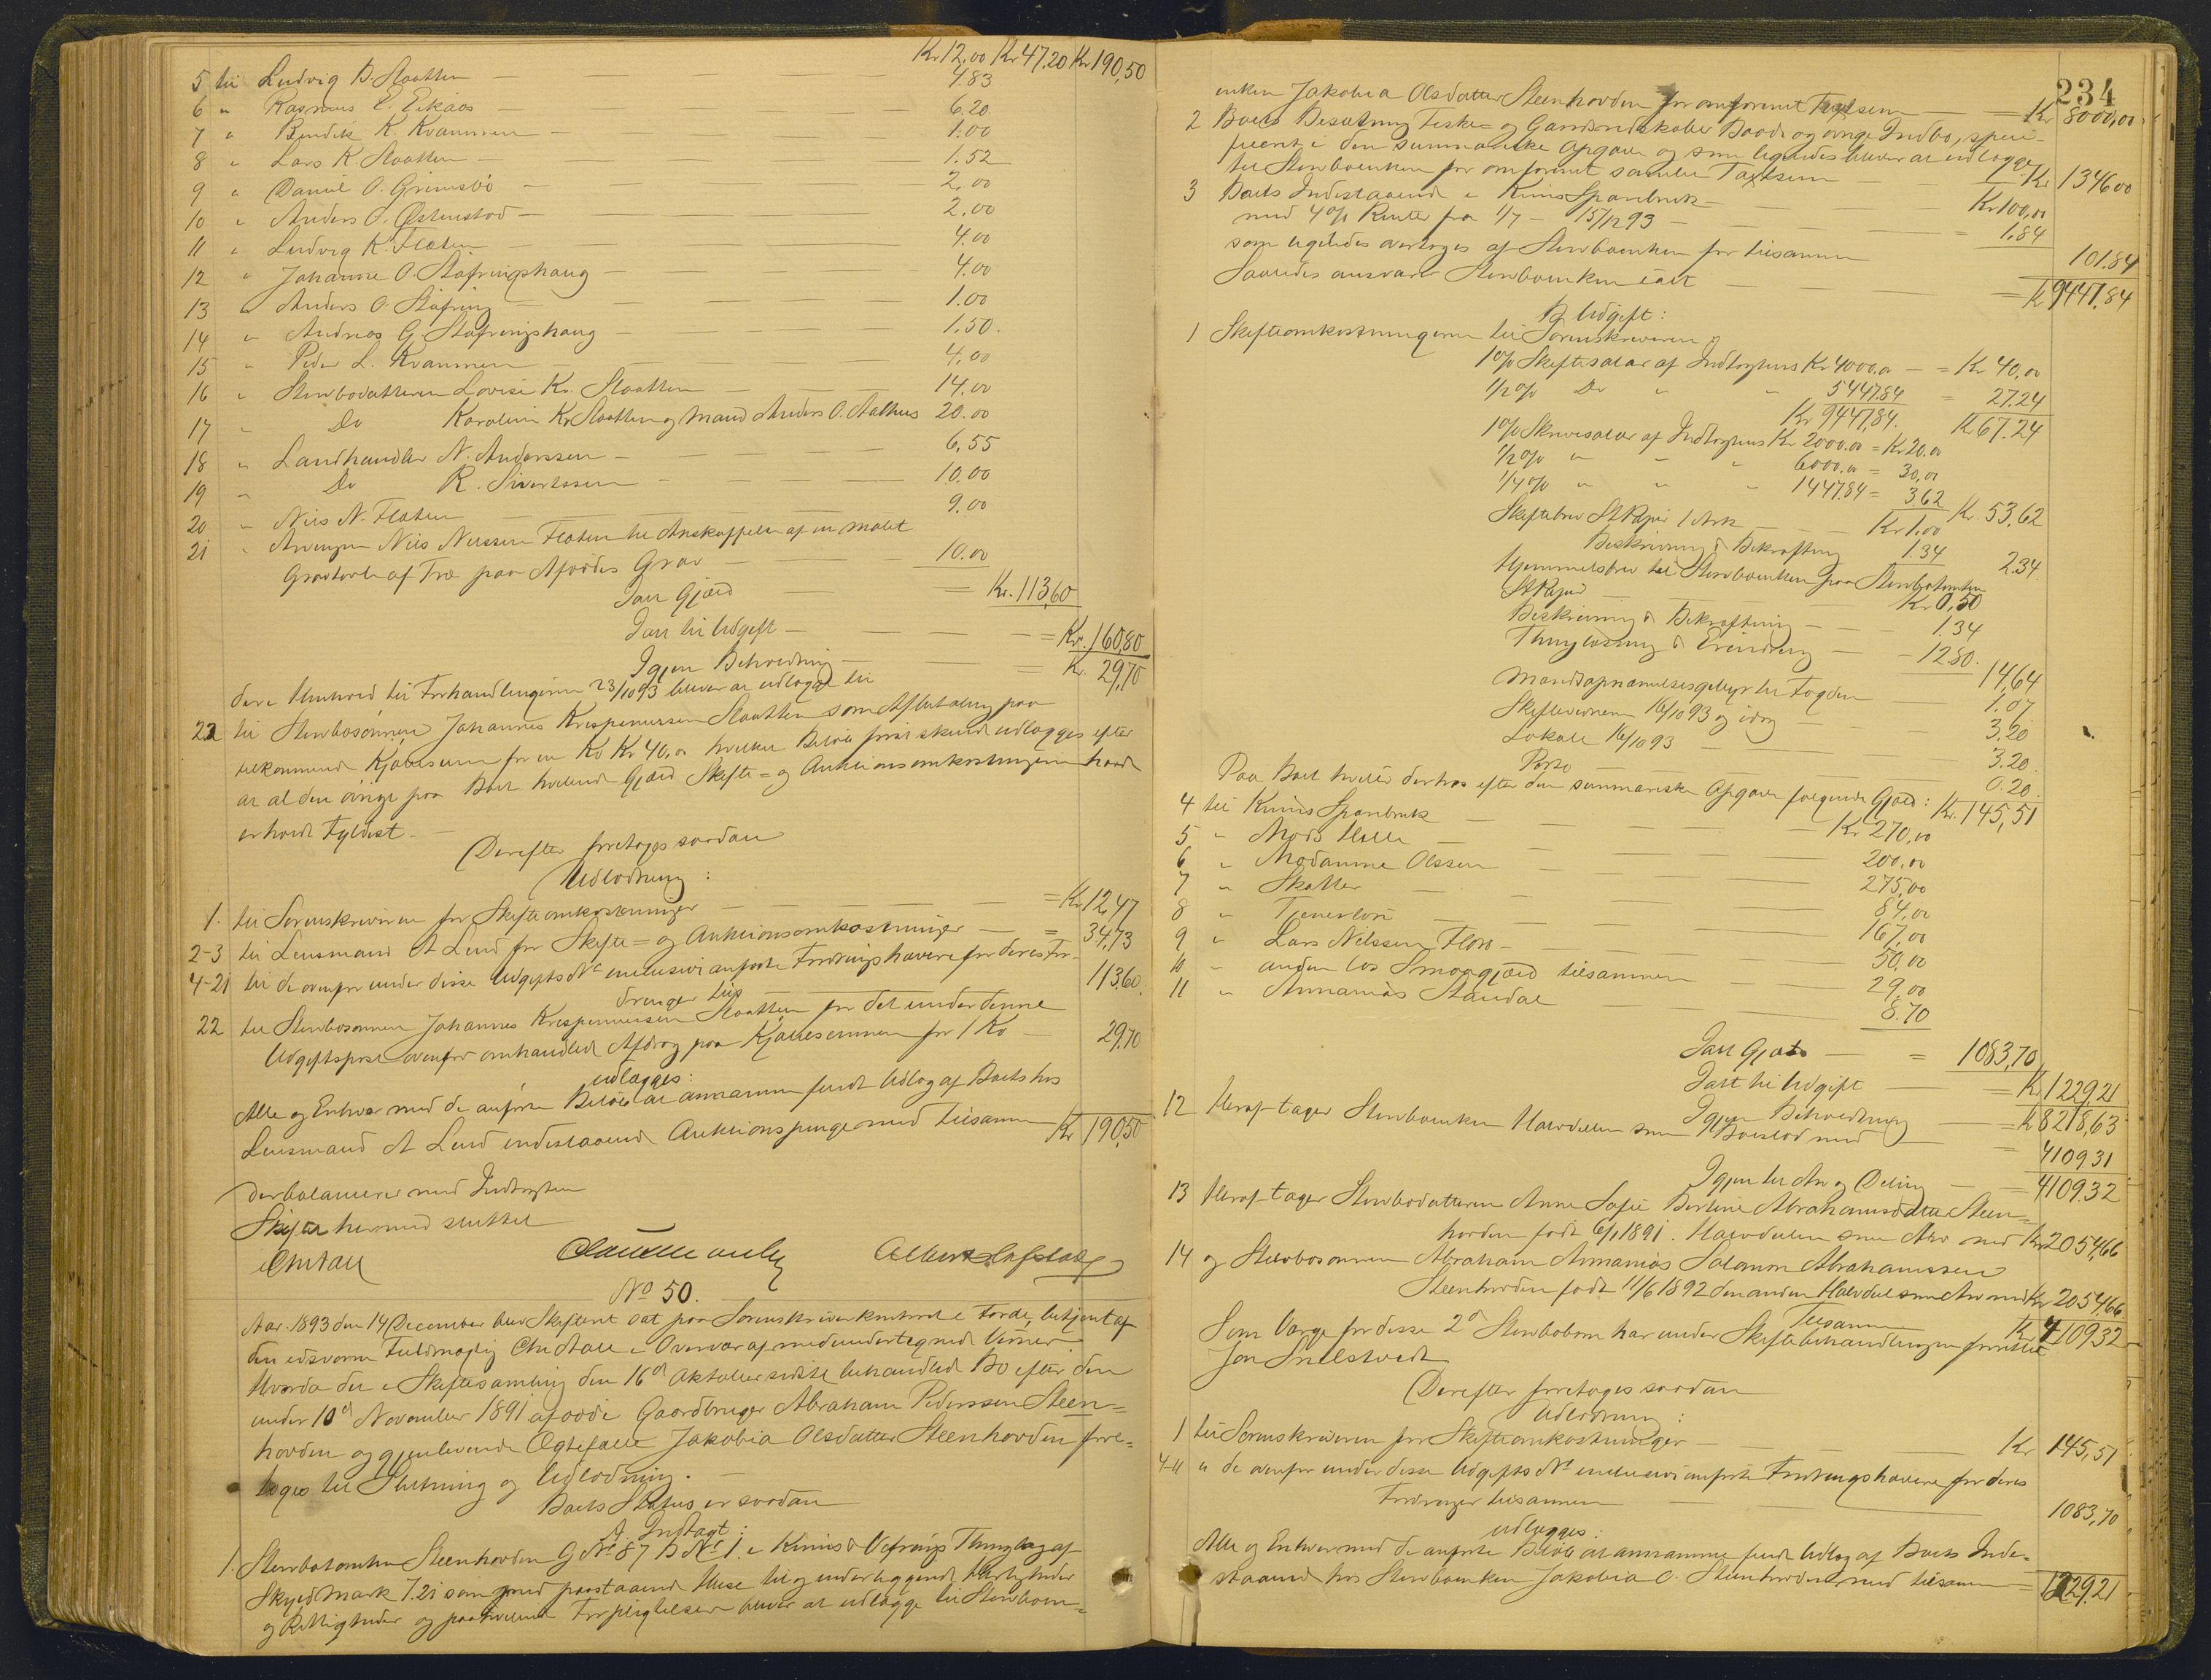 Kr 12.00 Kr 47.20 Kr 190,50
5 til Ludvig B. Slaatten — 4.83
6 " Rasmus E. Eikaas — 6.20
7 " Bendik K. Kvammen — 1.00
8 " Lars K. Slaatten — 1.52
9 " Daniel O. Grimsbö — 2.00
10 " Anders O. Østenstad — 2.00
11 " Ludvig K. Flaten — 4.00
12 " Johanne O. Stafringshaug — 4.00
13 " Anders O. Stafring — 1.00
14 " Andreas G. Stafringshaug — 1.50.
15 " Peder L. Kvammen — 4.00
16 " Stervbodatteren Lovise Kr. Slaatten — 14.00
17 " Do Karoline Kr Slaatten og Mand Anders O. Aalhus 20.00
18 " Landhandler N. Anderssen — 6,55
19 " Do R. Sivertssen — 10.00
20 " Nils N. Flaten — 9.00
21 " Arvingen Nils Nilssen Flaten til Anskaffelse af en malet
Gravtavle af Træ paa Afdødes Grav — 10.00
Ialt Gjæld — = Kr. 113,60
Ialt til Udgift — = Kr. 160,80
Igjen Beholdning — = Kr. 29,70
der i Henhold til Forhandlingerne 23/10 93 bliver at udlægge til
22 til Stervbosønnen Johannes Krispinussen Slaatten som Afbetaling paa
tilkommende Kjøbesum for en Ko Kr 40,00 hvilket Beløb først skulde udlægges efter
at al den øvrige paa Boet hvilende Gjæld Skifte= og Auktionsomkostningerne havde
erholdt Fyldest.
Derefter foretoges saadan
Udlodning:
1. til Sorenskriveren for Skifteomkostninger — = Kr. 12,47
2-3 til Lensmand A Lund for Skifte= og Auktionsomkostninger — = 34,73
4-21 til de ovenfor under disse Udgifts No inclusive anførte Fordringshavere for deres For-
dringer tils 113,60.
22 til Stervbosønnen Johannes Krispinussen Slaatten for det under denne
Udgiftspost ovenfor omhandlede Afdrag paa Kjøbesummen for 1 Ko — 29.70
udlægges:
Alle og Enhver med de anførte Beløb at annamme fuldt Udlæg af Boets hos
Lensmand A Lund indestaaende Auktionspenge med tilsammen Kr 190,50
der balancerer med Indtægten
Skiftet hermed sluttet
No 50.
Aar 1893 den 14 December blev Skifteret sat paa Sorenskriverkontoret i Førde, betjent af
den edsvorne Fuldmægtig Chr Aall i Overvær af medundertegnede Vidner.
Hvorda det i Skiftesamling den 16de Oktober sidste behandlede Bo efter den
under 10de November 1891 afdøde Gaardbruger Abraham Pederssen Steen=
hovden og gjenlevende Ægtefælle Jakobia Olsdatter Steenhovden fore=
toges til Slutning og Udlodning. —
Boets Status er saadan
A Indtægt:
1. Stervbotomten Steenhovden G No 87 B No 1. i Kinns & Vefrings Thinglag af
Skyld Mark 7.21 som med paastaaende Huse til og underliggende Herligheder
og Rettigheder og paahvilende Forpligtelser bliver at udlægge til Stervboen=
234
enken Jakobia Olsdatter Steenhovden for omforenet Taxtsum — = Kr 8000,00
2 Boets Besætning Fiske= og Gaardsredskaber Baade og øvrige Indbo, speci=
ficeret i den summariske Opgave og som ligeledes bliver at udlægge
til Stervboenken for omforenet samlet Taxtsum — Kr 1346.00
3 Boets Indestaaende i Kinns Sparebank — Kr. 100,00
med 4 % Renter fra 1/7 — 15/12 93 — 1.84
som ligeledes overtages af Stervboenken for tilsammen 101.84
Saaledes ansvarer Stervboenken ialt — = Kr 9447.84
B Udgift:
1 Skifteomkostningerne til Sorenskriveren
1 % Skiftesalær af Indtægtens Kr 4000.00 — = Kr 40,00
1/2 % Do " " 5447.84 = 27.24
Kr 9447.84. Kr 67.24
1 % Skrivesalær af Indtægtens Kr 2000.00 = Kr 20.00
1/2 % " " " 6000.00 = 30,00
1/4 % " " " 1447.84 = 3.62 Kr. 53,62
Skiftebrev St Papir 1 Ark — Kr 1.00
Beskrivning & Bekræftning 1.34 2.34
Hjemmelsbrev til Stervboenken paa Stervbotomten
St Papir Kr 0,50
Beskrivning & Bekræftning — 1.34
Thinglæsning & Erindring — 12.80. 14,64
Mandsopnævnelsesgebyr til Fogden — 1.07
Skiftevidnerne 16/10 93 og idag — 3.20
Lokale 16/10 93 — 3.20.
Porto — 0.20.
Kr. 145,51
Paa Boet hviler derhos efter den summariske Opgave følgende Gjæld:
4 til Kinns Sparebank — Kr 270,00
5 " Mads Hille — 200.00
6 " Madamme Olssen — 275,00
7 " Skatter — 84,00
8 " Tjenerløn — 167,00
9 " Lars Nilssen Florø — 50,00
10 " anden løs Smaagjæld tilsammen — 29,00
11 " Annanias Standal — 8.70
Ialt Gjæld — = 1083,70
Ialt til Udgift — = Kr 1229,21
Igjen Beholdning — = Kr 8218,63
12 Heraf tager Stervboenken Halvdelen som Boeslod med = 4109.31
Igjen til Arv og Deling — 4109.32
13 Heraf tager Stervbodatteren Anne Sofie Berline Abrahamsdatter Steen=
hovden født 6/1 1891. Halvdelen som Arv med Kr 2054.66
14 og Stervbosønnen Abraham Annanias Salamon Abrahamssen
Steenhovden født 11/6 1892 den anden Halvdel som Arv med Kr 2054.66
Tilsammen Kr 4109.32
Som Værge for disse 2de Stervbobørn har under Skiftebehandlingen fungeret
Jon Snilstvedt
Derefter foretoges saadan
Udlodning:
1 til Sorenskriveren for Skifteomkostninger — Kr 145,51
4-11 " de ovenfor under disse Udgifts No inclusive anførte Fordringshavere for deres
Fordringer tilsammen 1083,70
udlægges:
Alle og Enhver med de anførte Beløb at annamme fuldt Udlæg af Boets Inde=
staaende hos Stervboenken Jakobia O. Steenhovden med tilsammen = 1229.21